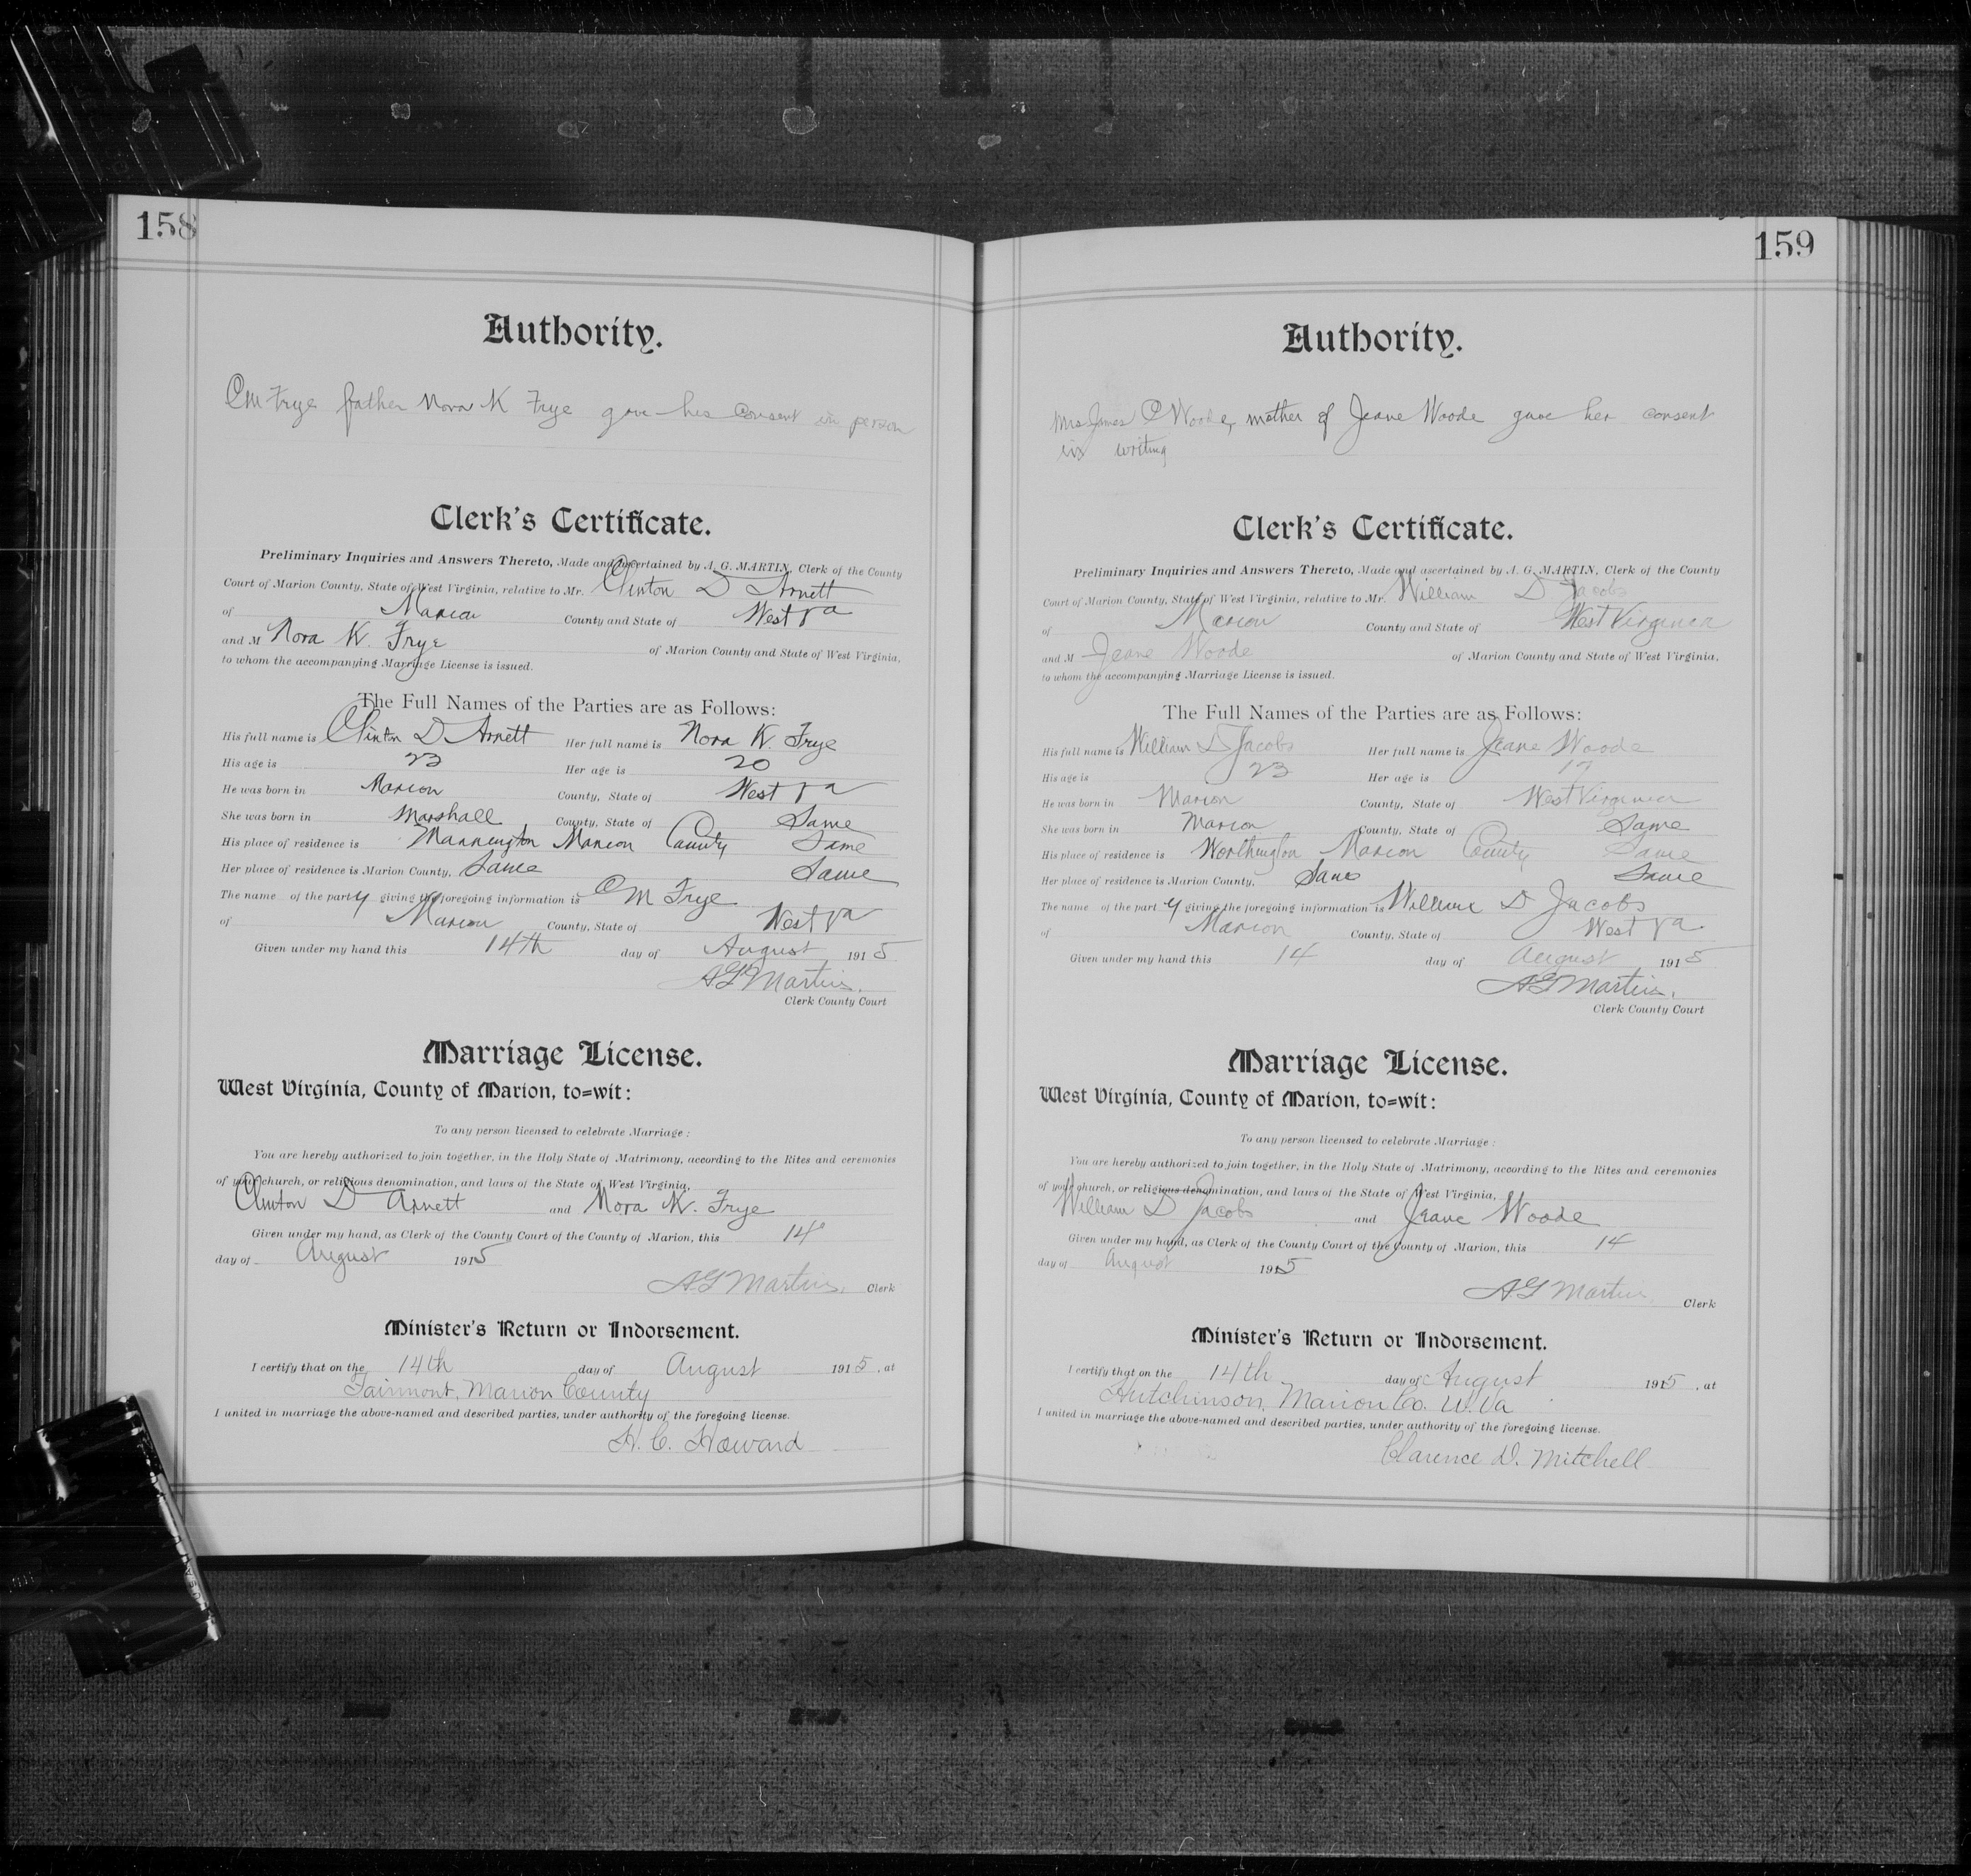 158
Authority.
CM Frye father Nora K Frye gave his consent in person
Clerk's Certificate.
Preliminary Inquiries and Answers Thereto, Made and ascertained by A. G. MARTIN, Clerk of the County
Court of Marion County, State of West Virginia, relative to Mr. Clinton D Arnett
of Marion County and State of West Va
and M Nora K. Frye of Marion County and State of West Virginia,
to whom the accompanying Marriage License is issued.
The Full Names of the Parties are as Follows:
His full name is Clinton D Arnett Her full name is Nora K. Frye
His age is 23 Her age is 20
He was born in Marion County, State of West Va
She was born in Marshall County, State of Same
His place of residence is Mannington Marion County Same
Her place of residence is Marion County, Same Same
The name of the party giving the foregoing information is CM Frye
of Marion County, State of West Va
Given under my hand this 14th day of August 1915
AG Martin.
Clerk County Court
Marriage License.
West Virginia, County of Marion, to=wit:
To any person licensed to celebrate Marriage:
You are hereby authorized to join together, in the Holy State of Matrimony, according to the Rites and ceremonies
of your church, or religious denomination, and laws of the State of West Virginia,
Clinton D Arnett and Nora K. Frye
Given under my hand, as Clerk of the County Court of the County of Marion, this 14
day of August 1915
AG Martin. Clerk
Minister's Return or Indorsement.
I certify that on the 14th day of August 1915, at
Fairmont, Marion County
I united in marriage the above-named and described parties, under authority of the foregoing license.
H. C. Howard
159
Authority.
Mrs James Woode, mother of Jeane Woode gave her consent
in writing
Clerk's Certificate.
Preliminary Inquiries and Answers Thereto, Made and ascertained by A. G. MARTIN, Clerk of the County
Court of Marion County, State of West Virginia, relative to Mr. William D Jacobs
of Marion County and State of West Virginia
and M Jeane Woode of Marion County and State of West Virginia,
to whom the accompanying Marriage License is issued.
The Full Names of the Parties are as Follows:
His full name is William D Jacobs Her full name is Jeane Woode
His age is 23 Her age is 17
He was born in Marion County, State of West Virginia
She was born in Marion County, State of Same
His place of residence is Worthington Marion County Same
Her place of residence is Marion County, Same Same
The name of the party giving the foregoing information is William D Jacobs
of Marion County, State of West Va
Given under my hand this 14 day of August 1915
AG Martin.
Clerk County Court
Marriage License.
West Virginia, County of Marion, to=wit:
To any person licensed to celebrate Marriage:
You are hereby authorized to join together, in the Holy State of Matrimony, according to the Rites and ceremonies
of your church, or religious denomination, and laws of the State of West Virginia,
William D Jacobs and Jeane Woode
Given under my hand, as Clerk of the County Court of the County of Marion, this 14
day of August 1915
AG Martin. Clerk
Minister's Return or Indorsement.
I certify that on the 14th day of August 1915, at
Hutchinson, Marion Co. W. Va
I united in marriage the above-named and described parties, under authority of the foregoing license.
Clarence D. Mitchell